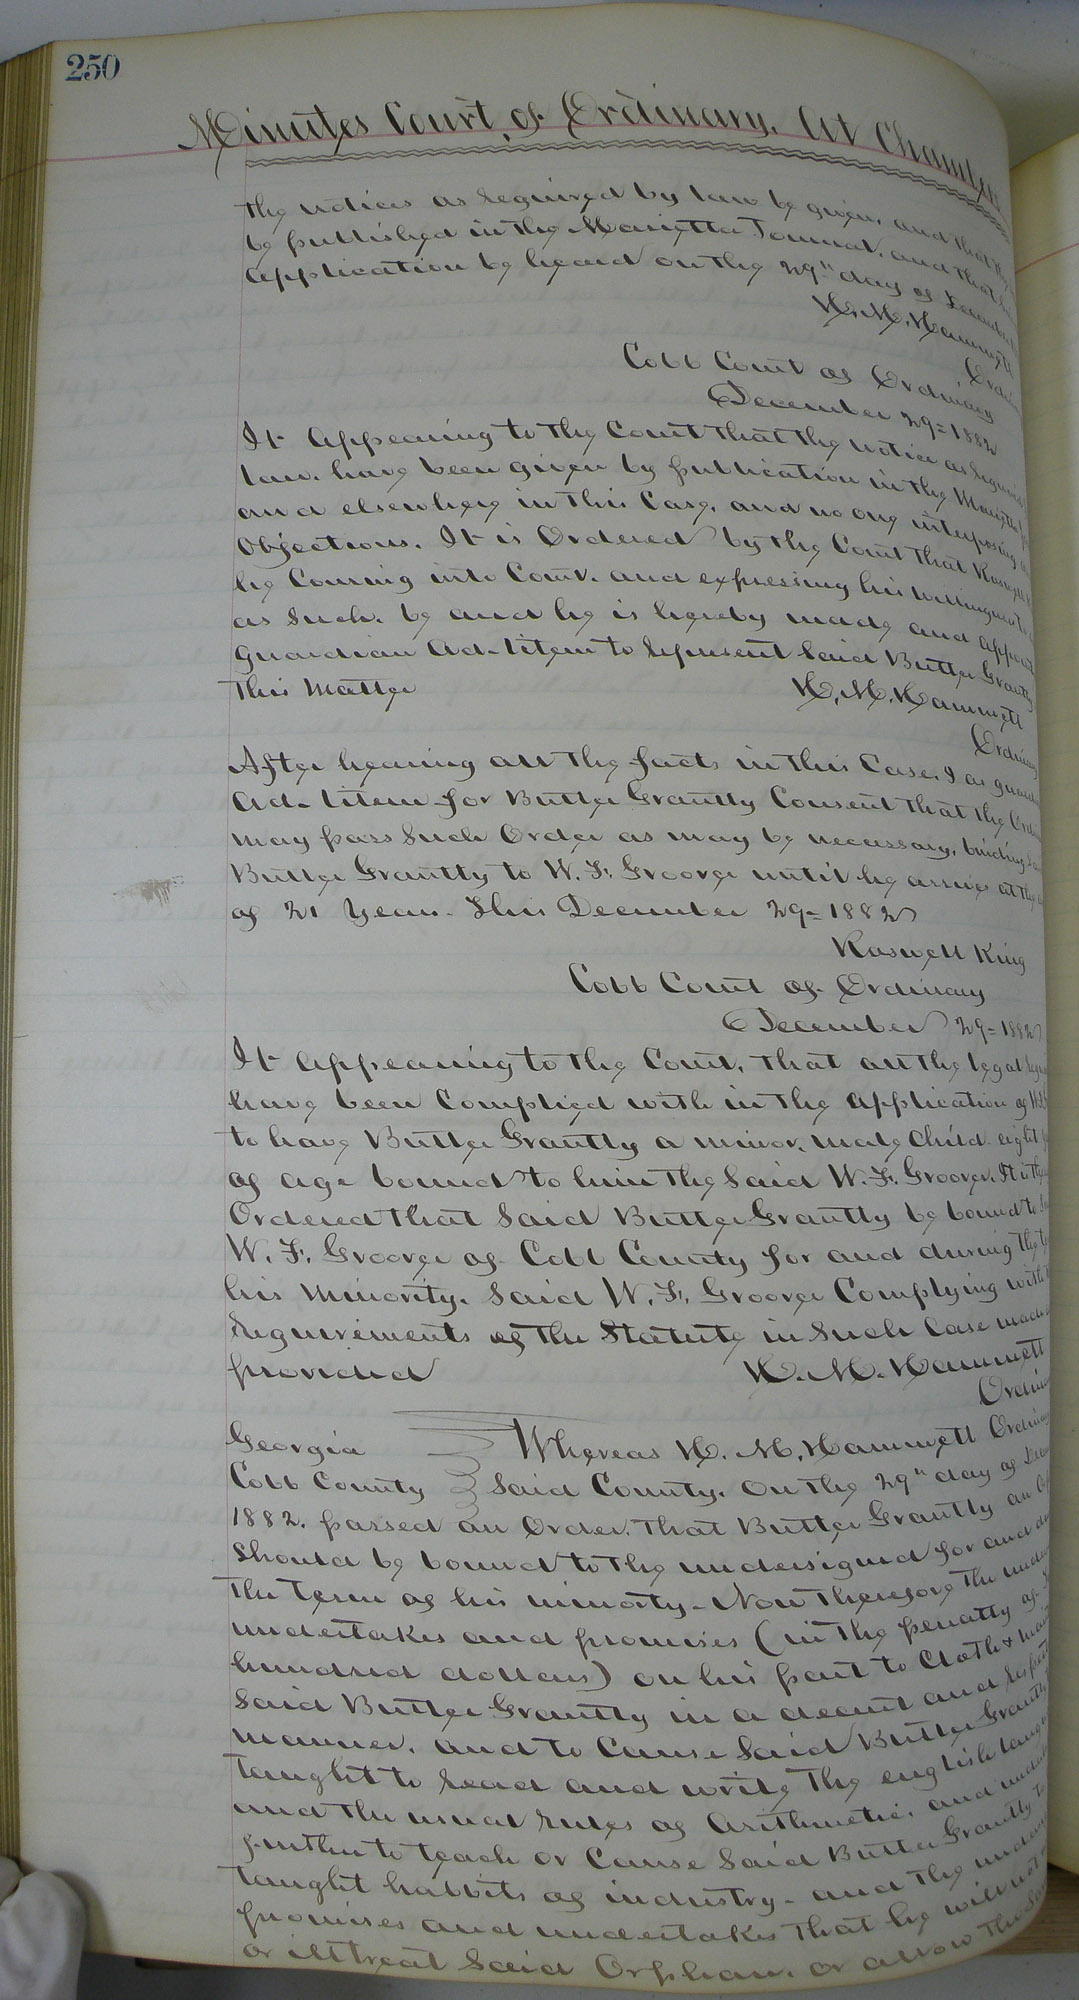 250
Minutes Court of Ordinary, At Chambers
the notices as required by law be given, and that they
be published in the Marietta Journal, and that said
application be heard on the 29" day of December
H. M. Hammett
Ordin
Cobb Court of Ordinary
December 29= 1882
It appearing to the Court that the notice as required
law, have been given by publication in the Marietta
and elsewhere in this Case, and no one interposing
Objections. It is Ordered by the Court that Roswell K
he Coming into Court, and expressing his willingness to
as Such, be and he is hereby made and appoint
Guardian ad-litem to represent Said Butler Grantly
this Matter
H. M. Hammett
Ordinary
After hearing all the facts in this Case, I as guard
ad-litem for Butler Grantly Consent that the Ordin
may pass Such Order as may be necessary, binding
Butler Grantly to W. F. Groover until he arrives at the
of 21 Years. This December 29= 1882
Roswell King
Cobb Court of Ordinary
December 29= 1882
It appearing to the Court, that all the legal
have been Complied with in the application of
to have Butler Grantly a minor, male Child eight
of age bound to him the Said W. F. Groover. It is
Ordered that Said Butler Grantly be bound to
W. F. Groover of Cobb County for and during the
his Minority. Said W. F. Groover Complying with
requirements of the Statute in Such Case made
provided
H. M. Hammett
Ordin
Georgia Whereas H. M. Hammett Ordinary
Cobb County Said County, On the 29" day of
1882, passed an Order, that Butler Grantly an
Should be bound to the undersigned for and
the term of his minority - Now Therefore the
undertakes and promises (in the penalty of
hundred dollars) on his part to Cloth &
Said Butler Grantly in a decent and
manner, and to Cause Said Butler Grantly
taught to read and write the english
and the usual rules of Arithmetic, and
further to teach or Cause Said Butler Grantly to
taught habbits of industry - and the
promises and undertakes that he will not
or illtreat Said Orphan, or allow the